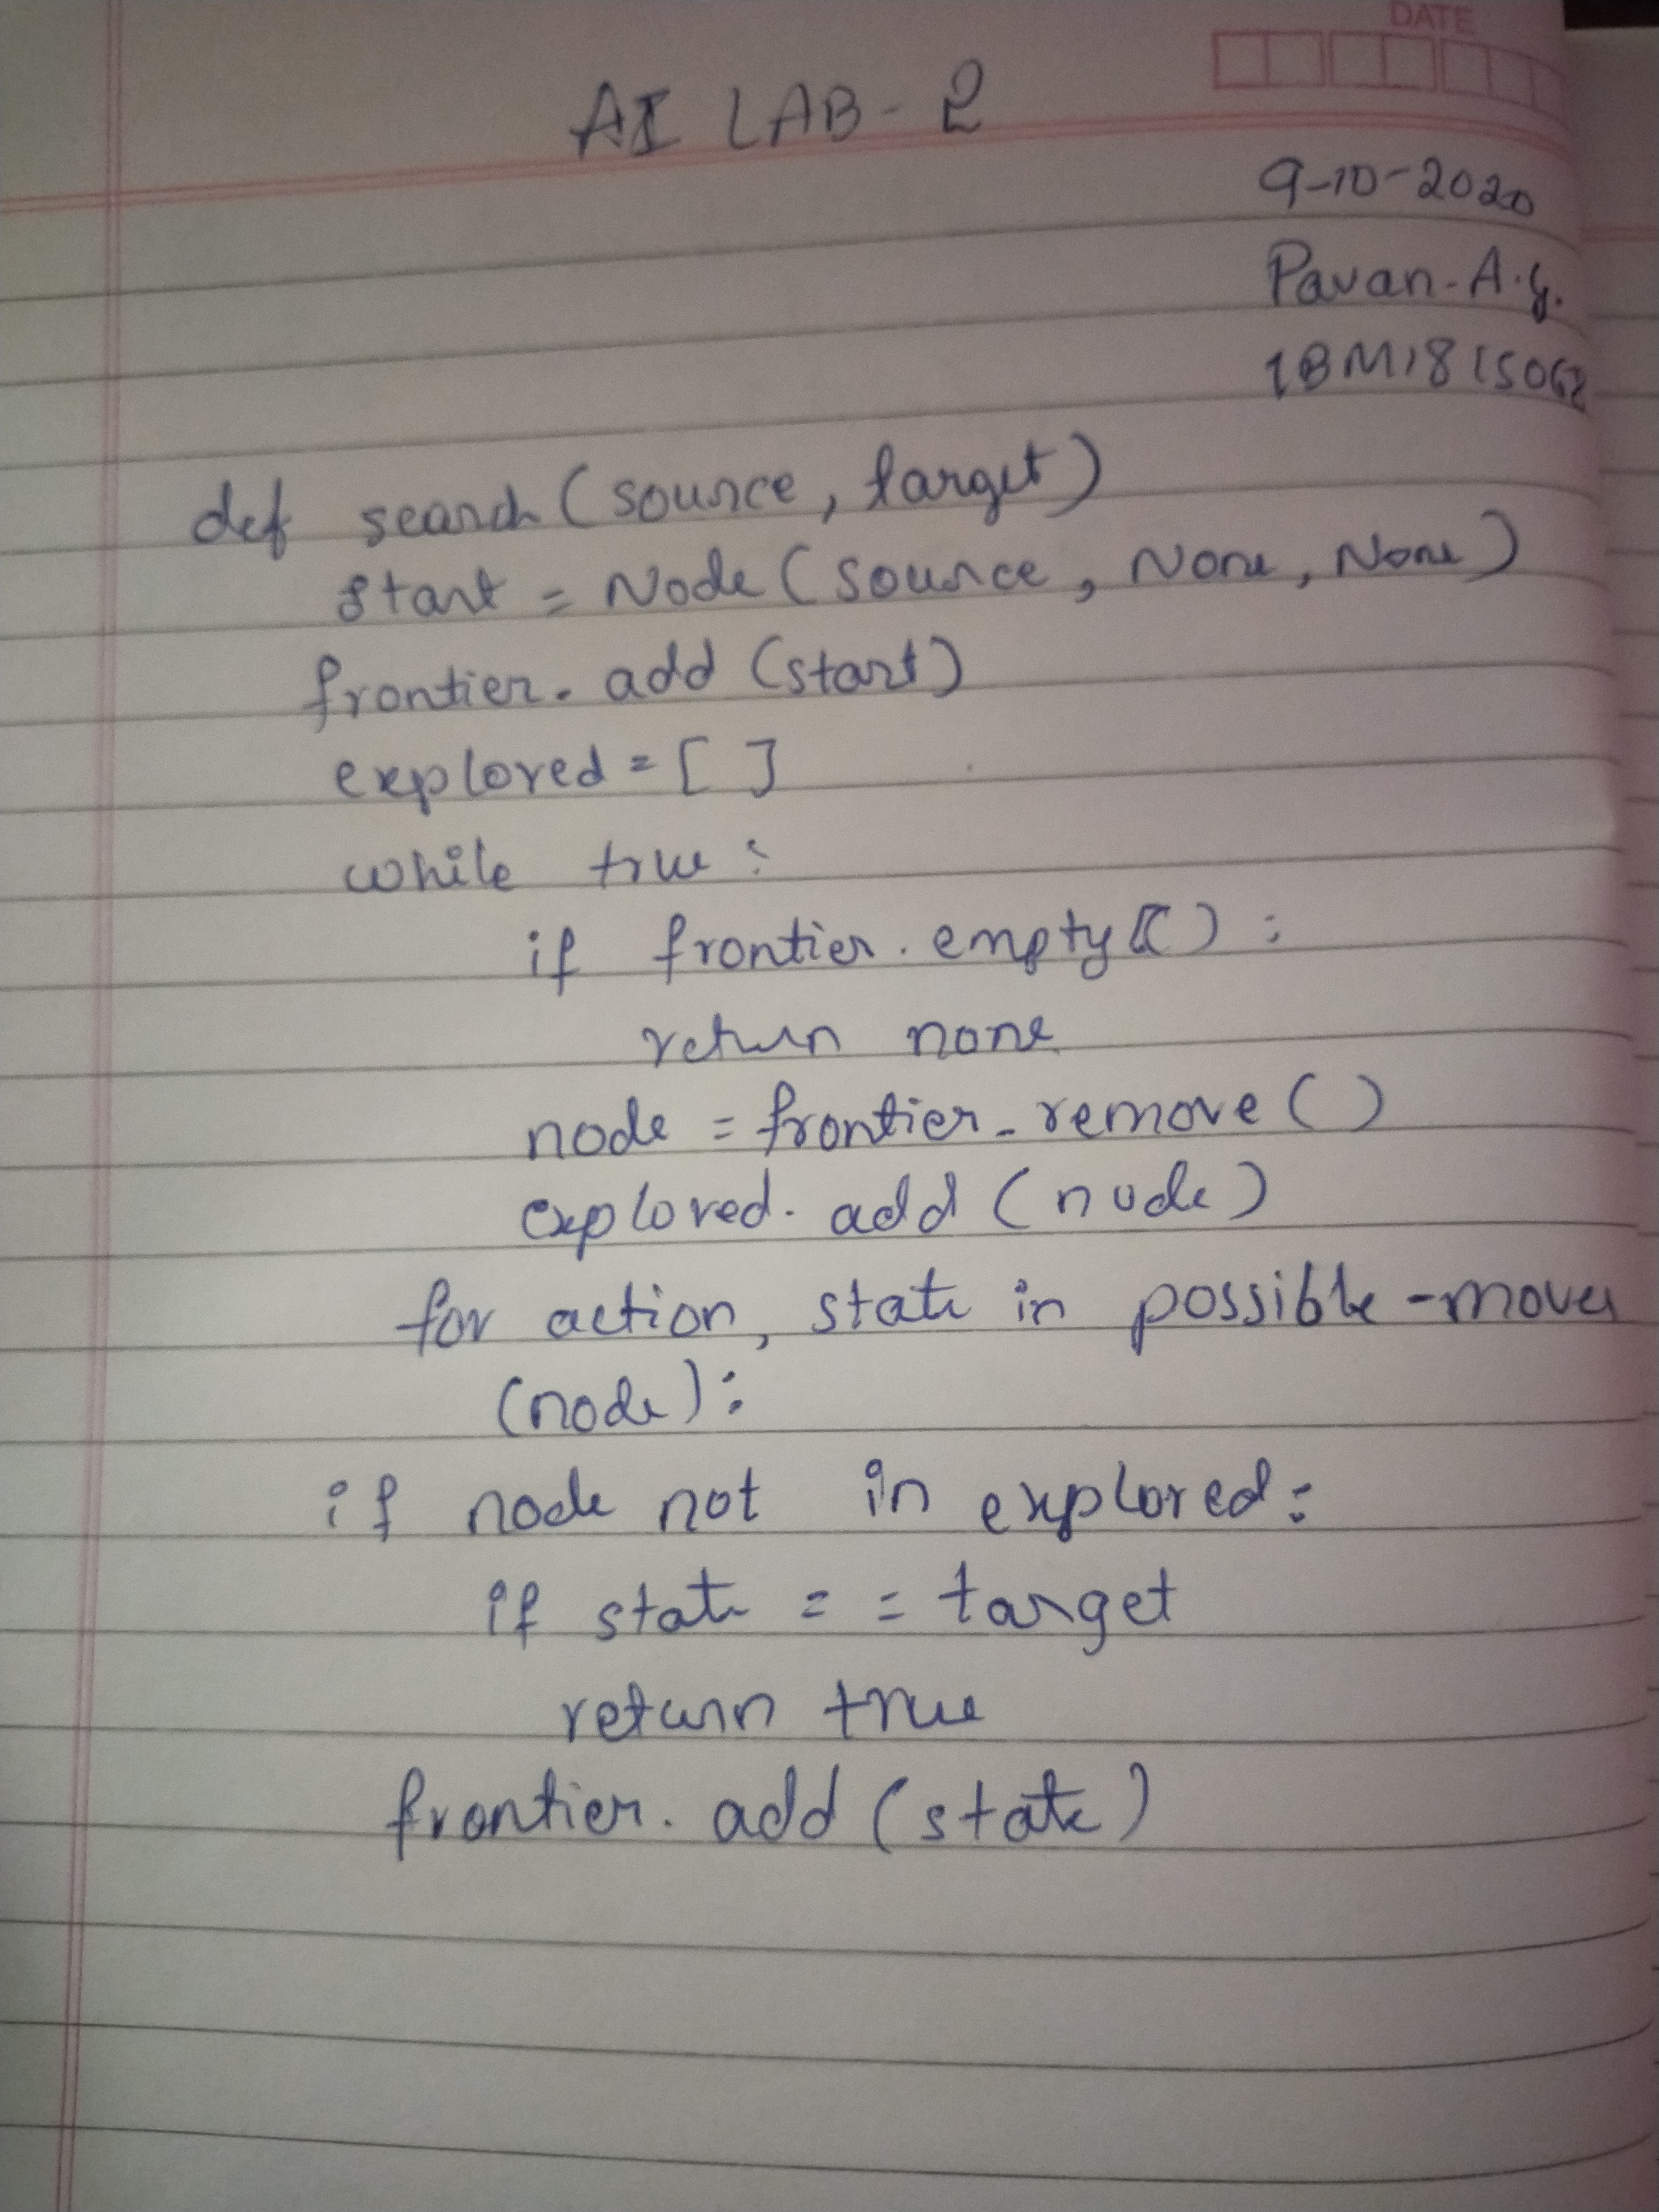 DATE
AI LAB - 2
9-10-2020
Pavan-A.G.
1BM18IS062
def search (source, target)
start = Node (source, None, None)
frontier. add (start)
explored = [ ]
while true :
if frontier. empty () :
return none
node = frontier. remove ()
explored. add (node)
for action, state in possible-moves
(node):
if node not in explored:
if state = = target
return true
frontier. add (state)